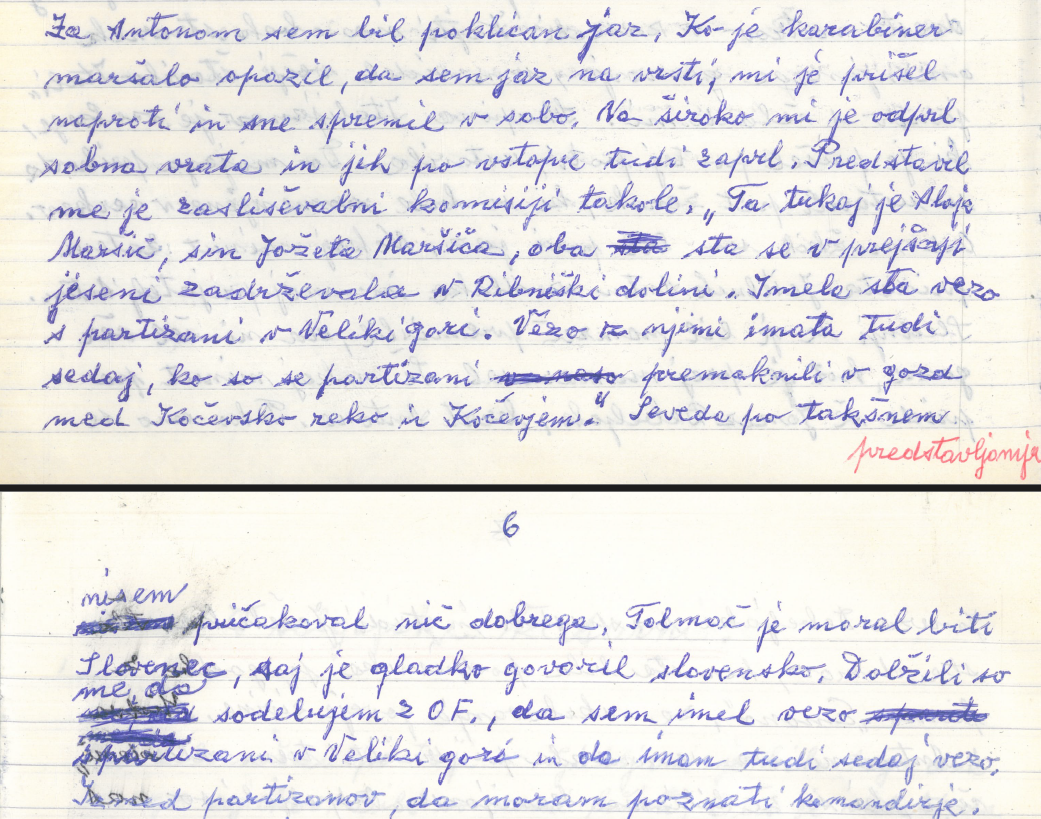 Za Antonom sem bil poklican jaz. Ko je karabiner
maršalo opazil, da sem jaz na vrsti, mi je prišel
naproti in me spremil v sobo. Na široko mi je odprl
sobna vrata in jih po vstopu tudi zaprl. Predstavil
me je zasliševalni komisiji takole. „Ta tukaj je Alojz
Maršič, sin Jožeta Maršiča, oba sta se v prejšnji
jeseni zadrževala v Ribniški dolini. Imela sta vezo
s partizani v Veliki gori. Vezo z njimi imata tudi
sedaj, ko so se partizani premaknili v gozd
med Kočevsko reko in Kočevjem." Seveda po takšnem
predstavljanju
6
nisem
pričakoval nič dobrega. Tolmač je moral biti
Slovenec, saj je gladko govoril slovensko. Dolžili so
me da
sodelujem z OF., da sem imel vezo
s partizani v Veliki gori in da imam tudi sedaj vezo.
partizanov, da moram poznati komandirje.